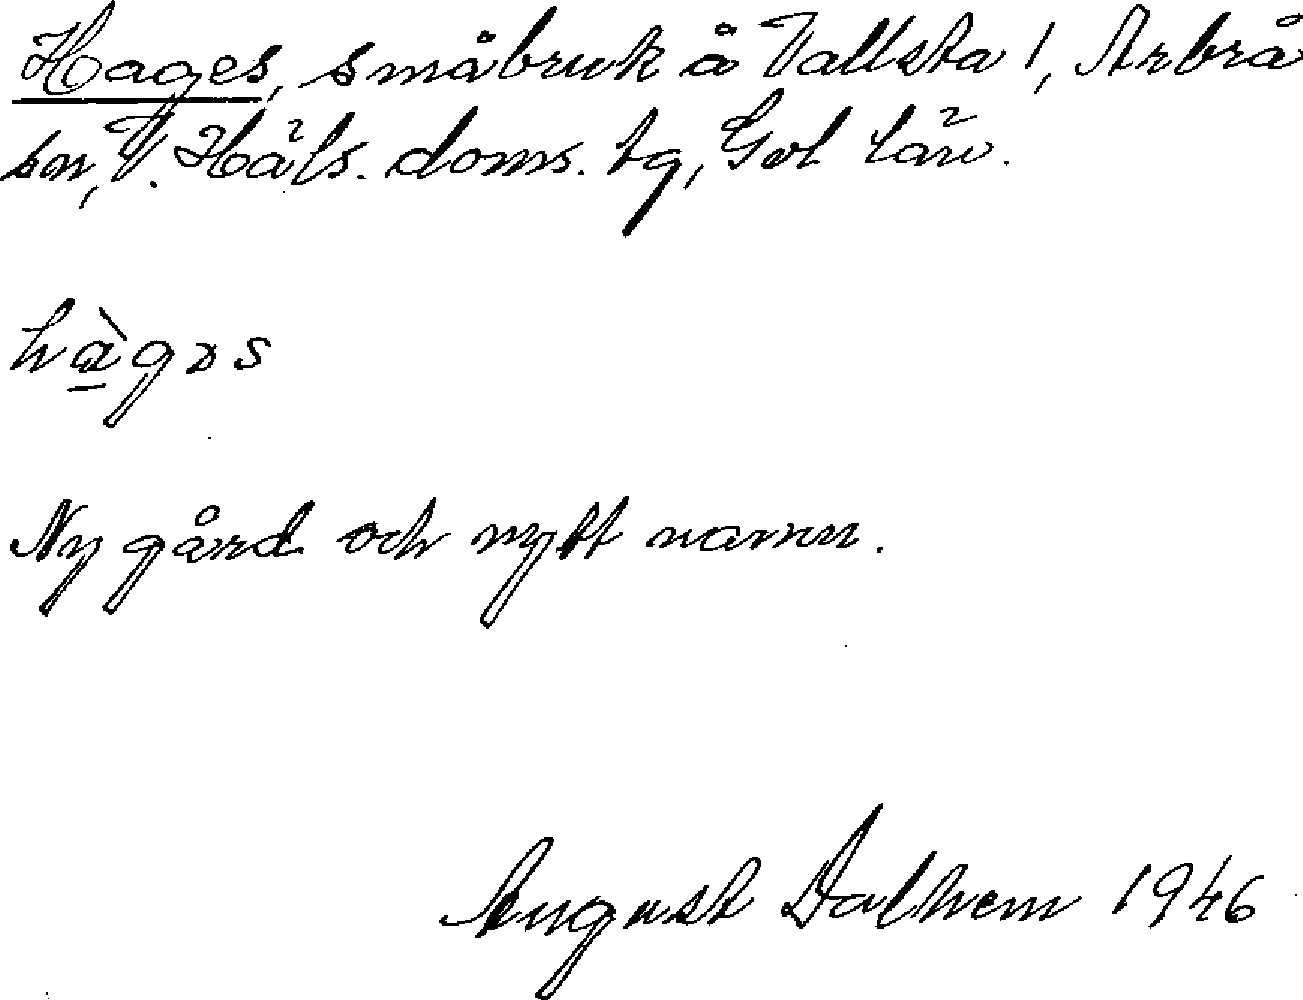 Hages, småbruk å Vallsta 1, Arbrå
sn, V. Häls. doms. tg, Gvl län.
hàgəs
Ny gård och nytt namn.
August Dalhem 1946